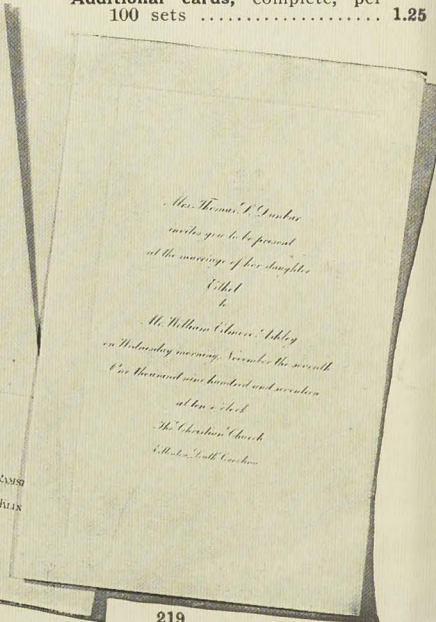 Additional cards, complete, per
100 sets .................... 1.25
Mrs. Thomas S. Dunbar
invites you to be present
at the marriage of her daughter
Ethel
to
Mr. William Gilmore Ashley
on Wednesday morning, November the seventh
One thousand nine hundred and seventeen
at ten o'clock
The Christian Church
South Carolina
RAMSE
KLIN
219